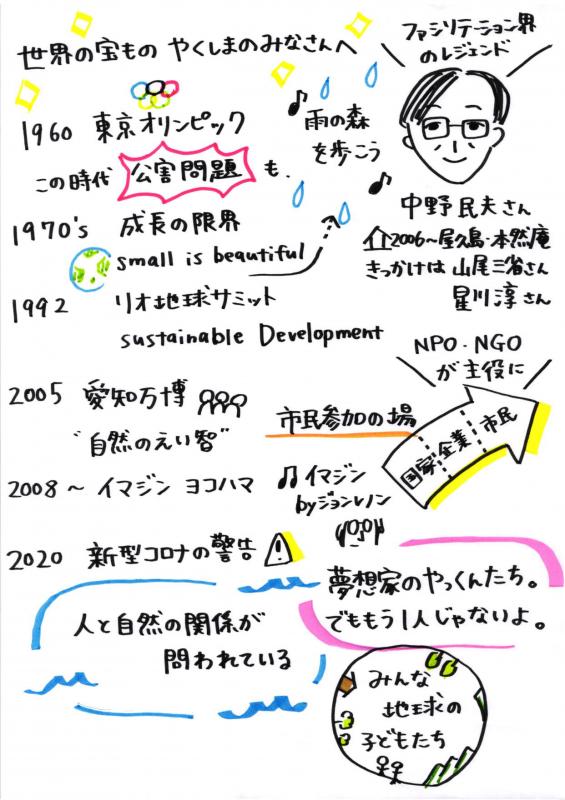 世界の宝もの やくしまのみなさんへ
ファシリテーション界
のレジェンド
1960 東京オリンピック
この時代 公害問題 も、
雨の森
を歩こう
1970's 成長の限界
small is beautiful
中野民夫さん
2006~屋久島・本然庵
きっかけは 山尾三省さん
星川淳さん
1992 リオ地球サミット
sustainable Development
NPO・NGO
が主役に
2005 愛知万博
"自然のえい智"
市民参加の場
国家 企業 市民
2008~ イマジン ヨコハマ
イマジン
byジョンレノン
2020 新型コロナの警告
夢想家のやっくんたち。
でももう1人じゃないよ。
人と自然の関係が
問われている
みんな
地球の
子どもたち